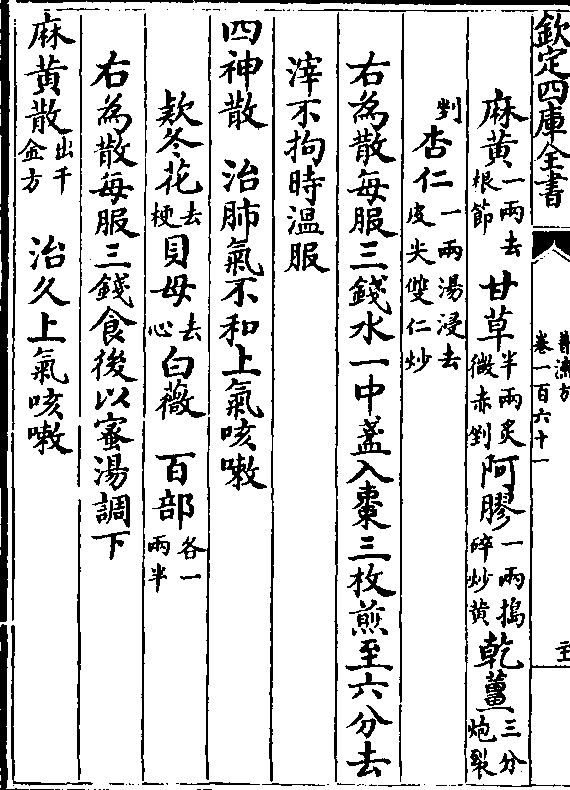 欽定四庫全書
普濟方
卷一百六十一
麻黃一兩去根節 甘草半兩炙微赤剉 阿膠一兩搗碎炒黃 乾薑三分炮裂
剉 杏仁一兩湯浸去皮尖雙仁炒
右為散每服三錢水一中盞入棗三枚煎至六分去
滓不拘時溫服
四神散 治肺氣不和上氣咳嗽
款冬花去梗 貝母去心 白薇 百部各一兩半
右為散每服三錢食後以蜜湯調下
麻黃散出千金方 治久上氣咳嗽